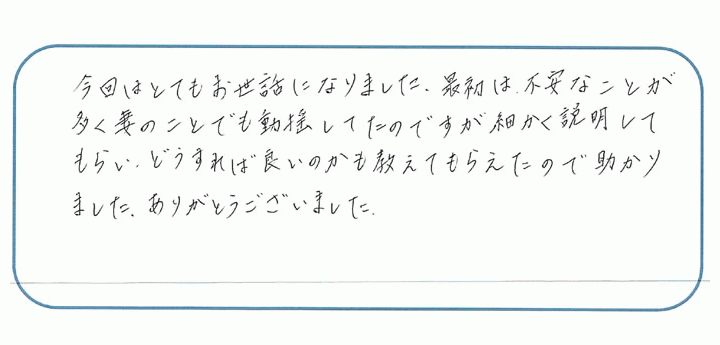 今回はとてもお世話になりました。最初は、不安なことが
多く妻のことでも動揺してたのですが細かく説明して
もらい、どうすれば良いのかも教えてもらえたので助かり
ました。ありがとうございました。